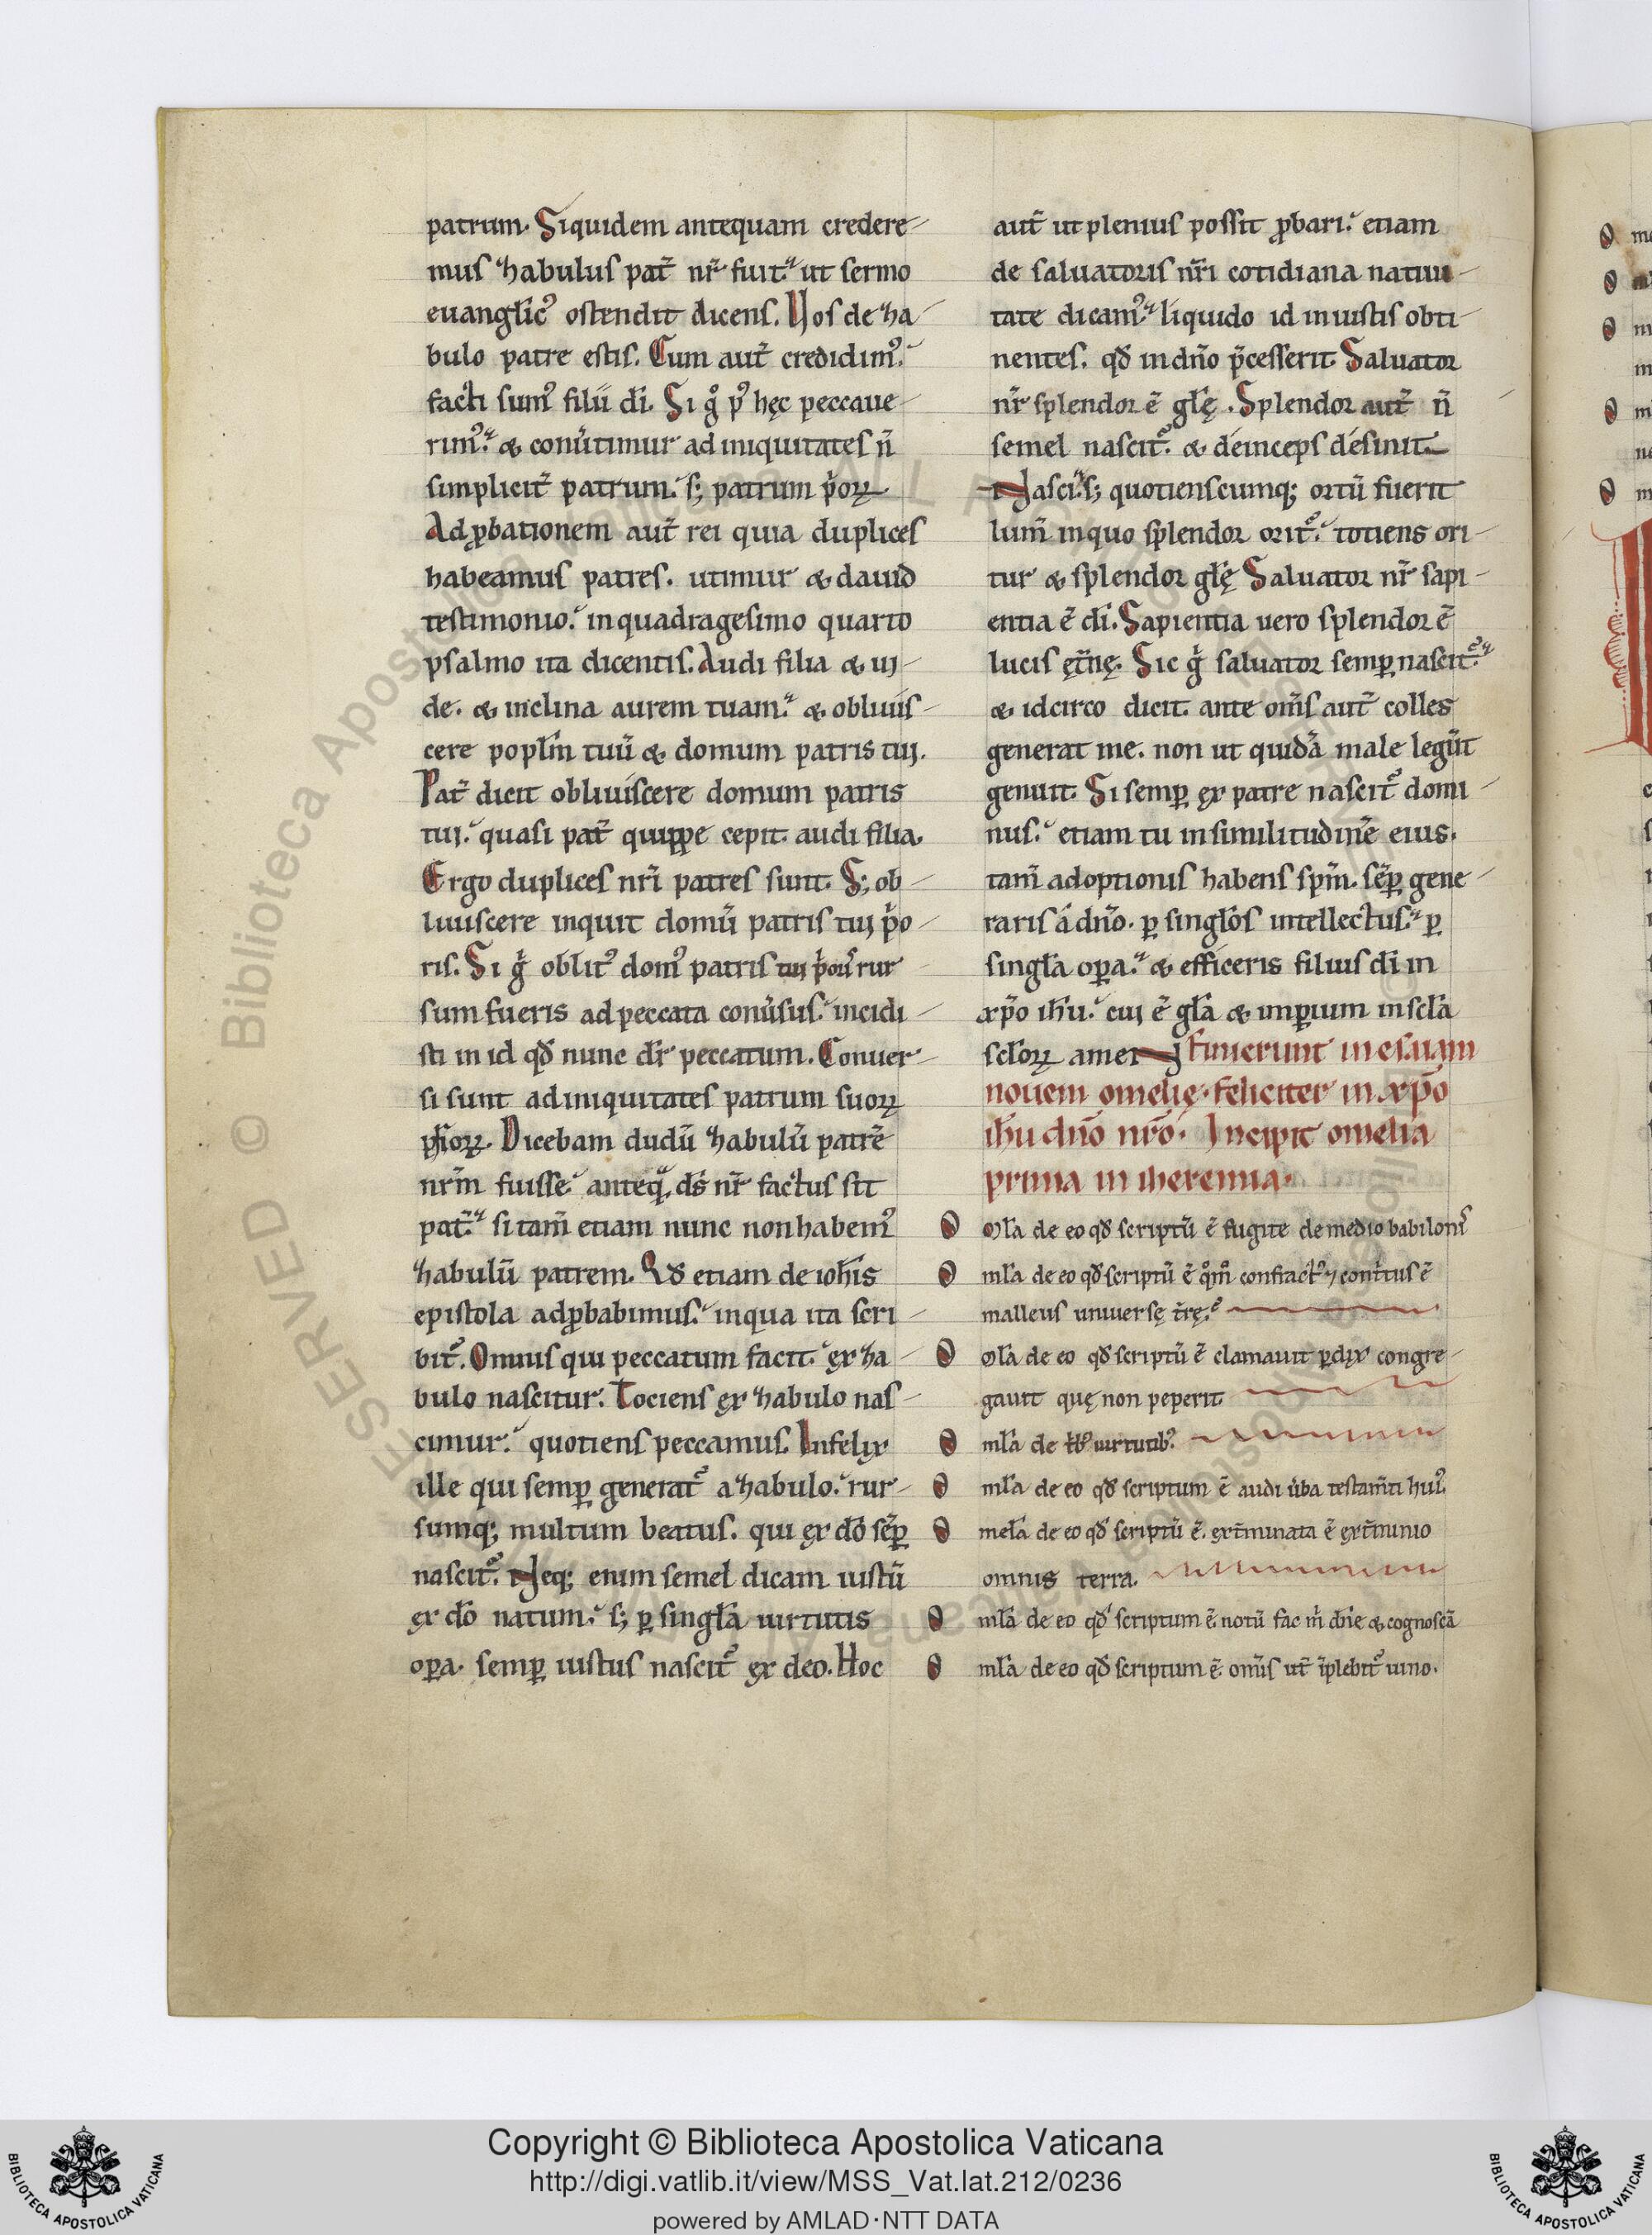 patrum. Siquidem antequam credere-
mus zhabulus pat̃ nr̃ fuit. ut sermo
euanglic᾿ ostendit dicens. Uos de zha-
bulo patre estis. Cum aut̃ credidim᾿.
facti sum᾿ filii di. Si g̊ p᾿ hęc peccaue-
rim᾿. & conũtimur ad iniquitates ñ
simplicit̃ patrum. s; patrum p̃oꝝ
Ad ꝓbationem aut̃ rei quia duplices
habeamus patres. utimur & dauid
testimonio. in quadragesimo quarto
psalmo ita dicentis. Audi filia & ui-
de. & inclina aurem tuam. & obliuis-
cere poplm̃ tuũ & domum patris tui.
Pat̃ dicit obliuiscere domum patris
tui. quasi pat̃ quippe cepit. audi filia.
Ergo duplices nr̃i patres sunt. S; ob-
liuiscere inquit domũ patris tui p̃o-
ris. Si g̊ oblit᾿ dom᾿ patris tui p̃oris rur
sum fueris ad peccata conũsus. incidi-
sti in id qđ nunc dr̃ peccatum. Conuer-
si sunt ad iniquitates patrum suoꝝ
p̃oꝝ. Dicebam dudũ zhabulũ patrẽ
nrm̃ fuisse. anteq̃ ds̃ nr̃ factus sit
pat̃. si tam̃ etiam nunc non habem᾿
zhabulũ patrem. Qđ etiam de ioh̃is
epistola adꝓbabimus. in qua ita scri-
bit᾿. Omnis qui peccatum facit. ex zha-
bulo nascitur. Tociens ex zhabulo nas-
cimur. quotiens peccamus. Infelix
ille qui semꝑ generat᾿ a zhabulo. rur-
sumq; multum beatus. qui ex dõ sẽꝑ
nascit᾿. Neq; enim semel dicam iustũ
ex dõ natum. s; ꝑ singla uirtutis
oꝑa. semꝑ iustus nascit᾿ ex deo. Hoc
aut̃ ut plenius possit ꝓbari. etiam
de saluatoris nr̃i cotidiana natiui-
tate dicam᾿. liquido id in iustis obti-
nentes. qđ in dño p̃cesserit. Saluator
nr̃ splendor ẽ glę. Splendor aut̃ ñ
semel nascit᾿. & deinceps desinit
Nasci. s; quotienscumq; ortũ fuerit
lum̃ in quo splendor orit᾿. totiens ori-
tur & splendor glę Saluator nr̃ sapi-
entia ẽ di. Sapientia uero splendor ẽ
lucis ęt̃nę. Sic g̊ saluator semꝑ nascit᾿.
& idcirco dicit. ante om̃s aut̃ colles
generat me. non ut quidã male legũt
genuit. Si semꝑ ex patre nascit᾿ domi-
nus. etiam tu in similitudinẽ eius.
tam̃ adoptionis habens sp̃m. sẽꝑ gene-
raris a dño. ꝑ singlos intellectus. ꝑ
singla oꝑa. & efficeris filius di in
xp̃o ih̃u. cui ẽ gla & imꝑium in scla
sclo̅ꝝ amen finierunt in esaiam
nouem omelię. feliciter in xp̃o
ih̃u dño nr̃o. Incipit omelia
prima in iheremia.
Omla de eo qđ scriptũ ẽ fugite de medio babilonis
Omla de eo qđ scriptũ ẽ q̃m̊ confract᾿ & cont̃tus ẽ
malleus uniuersę t̃rę.
Omla de eo qđ scriptũ ẽ clamauit ꝑdix congre-
gauit quę non peperit.
Omla de uirtutib᾿.
Omla de eo qđ scriptum ẽ audi ũba testam̃ti hui᾿.
Omela de eo qđ scriptũ ẽ. ext̃minata ẽ ext̃minio
omnis terra.
Omla de eo qđ scriptum ẽ. notũ fac m̃ dñe & cognoscã
Omla de eo qđ scriptum ẽ. omĩs ut̃ ĩplebit᾿ uino.
SERVED © Biblioteca Apostolica Vaticana
Copyright © Biblioteca Apostolica Vaticana
http://digi.vatlib.it/view/MSS_Vat.lat.212/0236
powered by AMLAD·NTT DATA
BIBLIOTECA APOSTOLICA VATICANA
BIBLIOTECA APOSTOLICA VATICANA